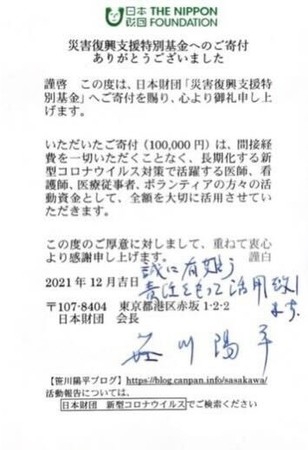 日本財団 THE NIPPON FOUNDATION
災害復興支援特別基金へのご寄付
ありがとうございました
謹啓　この度は、日本財団「災害復興支援特
別基金」へご寄付を賜り、心より御礼申し上
げます。
いただいたご寄付（100,000円）は、間接経
費を一切いただくことなく、長期化する新
型コロナウイルス対策で活躍する医師、看
護師、医療従事者、ボランティアの方々の活
動資金として、全額を大切に活用させてい
ただきます。
この度のご厚意に対しまして、重ねて衷心
より感謝申し上げます。　謹白
誠に有難う
2021年12月吉日
責任をもって活用致し
ます。
〒107-8404　東京都港区赤坂1-2-2
日本財団　会長
笹川陽平
【笹川陽平ブログ】https://blog.canpan.info/sasakawa/
活動報告については、
日本財団　新型コロナウイルスでご検索ください